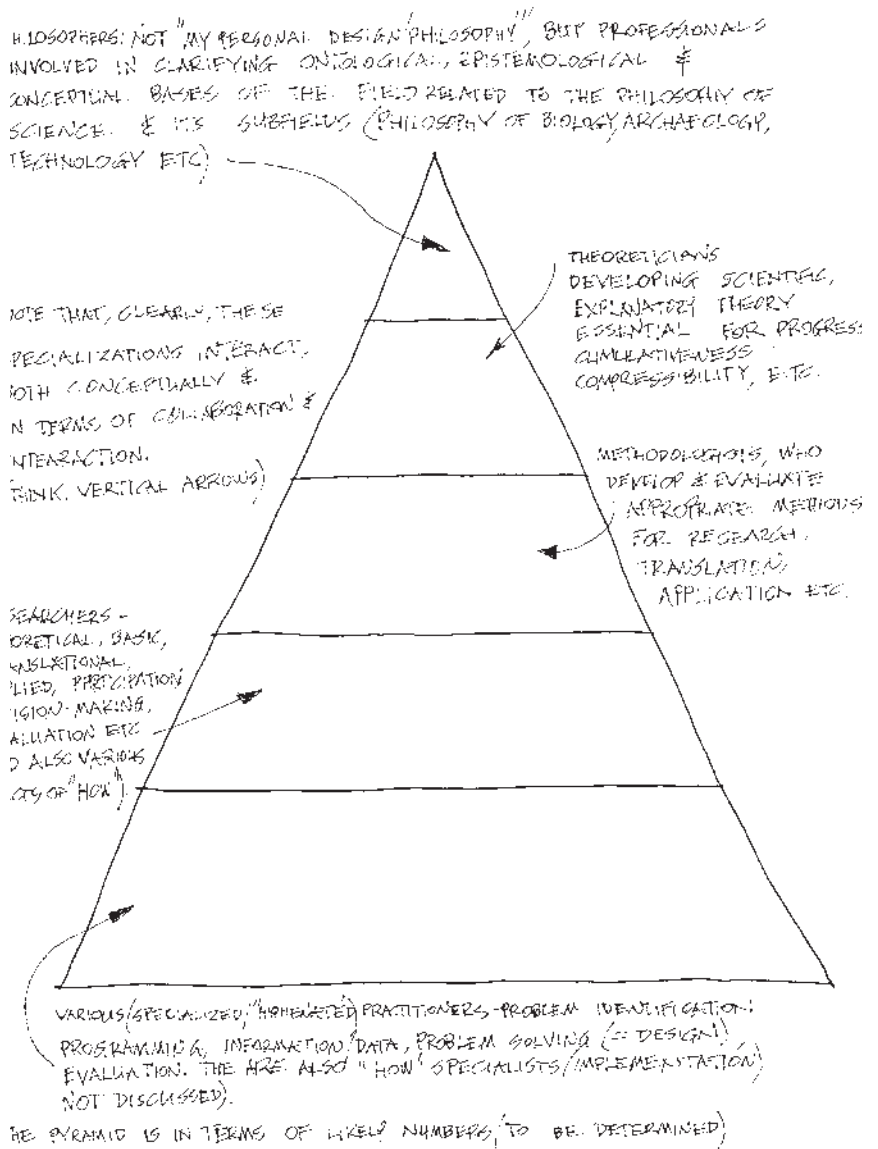 HILOSOPHERS: NOT "MY PERSONAL DESIGN 'PHILOSOPHY'", BUT PROFESSIONALS
INVOLVED IN CLARIFYING ONTOLOGICAL, EPISTEMOLOGICAL &
CONCEPTUAL BASES OF THE FIELD RELATED TO THE PHILOSOPHY OF
SCIENCE & ITS SUBFIELDS (PHILOSOPHY OF BIOLOGY, ARCHAEOLOGY,
TECHNOLOGY ETC)
THEORETICIANS
DEVELOPING SCIENTIFIC,
EXPLANATORY THEORY
ESSENTIAL FOR PROGRESS
CUMULATIVENESS
COMPRESSIBILITY, ETC.
NOTE THAT, CLEARLY, THESE
PECIALIZATIONS INTERACT,
BOTH CONCEPTUALLY &
N TERMS OF COLLABORATION &
INTEARACTION.
THINK VERTICAL ARROWS)
METHODOLOGISTS, WHO
DEVELOP & EVALUATE
APPROPRIATE METHODS
FOR RESEARCH,
TRANSLATION,
APPLICATION ETC.
SEARCHERS -
ORETICAL, BASIC,
ANSLATIONAL,
PLIED, PARTICIPATION
ISION-MAKING,
ALUATION ETC
D ALSO VARIOUS
CTS OF "HOW")
VARIOUS (SPECIALIZED, "HYPHENATED") PRACTITIONERS - PROBLEM IDENTIFICATION:
PROGRAMMING, INFORMATION/DATA, PROBLEM SOLVING (= DESIGN!)
EVALUATION. THE ARE ALSO "HOW" SPECIALISTS (IMPLEMENTATION)
NOT DISCUSSED).
HE PYRAMID IS IN TERMS OF LIKELY NUMBERS, TO BE DETERMINED)